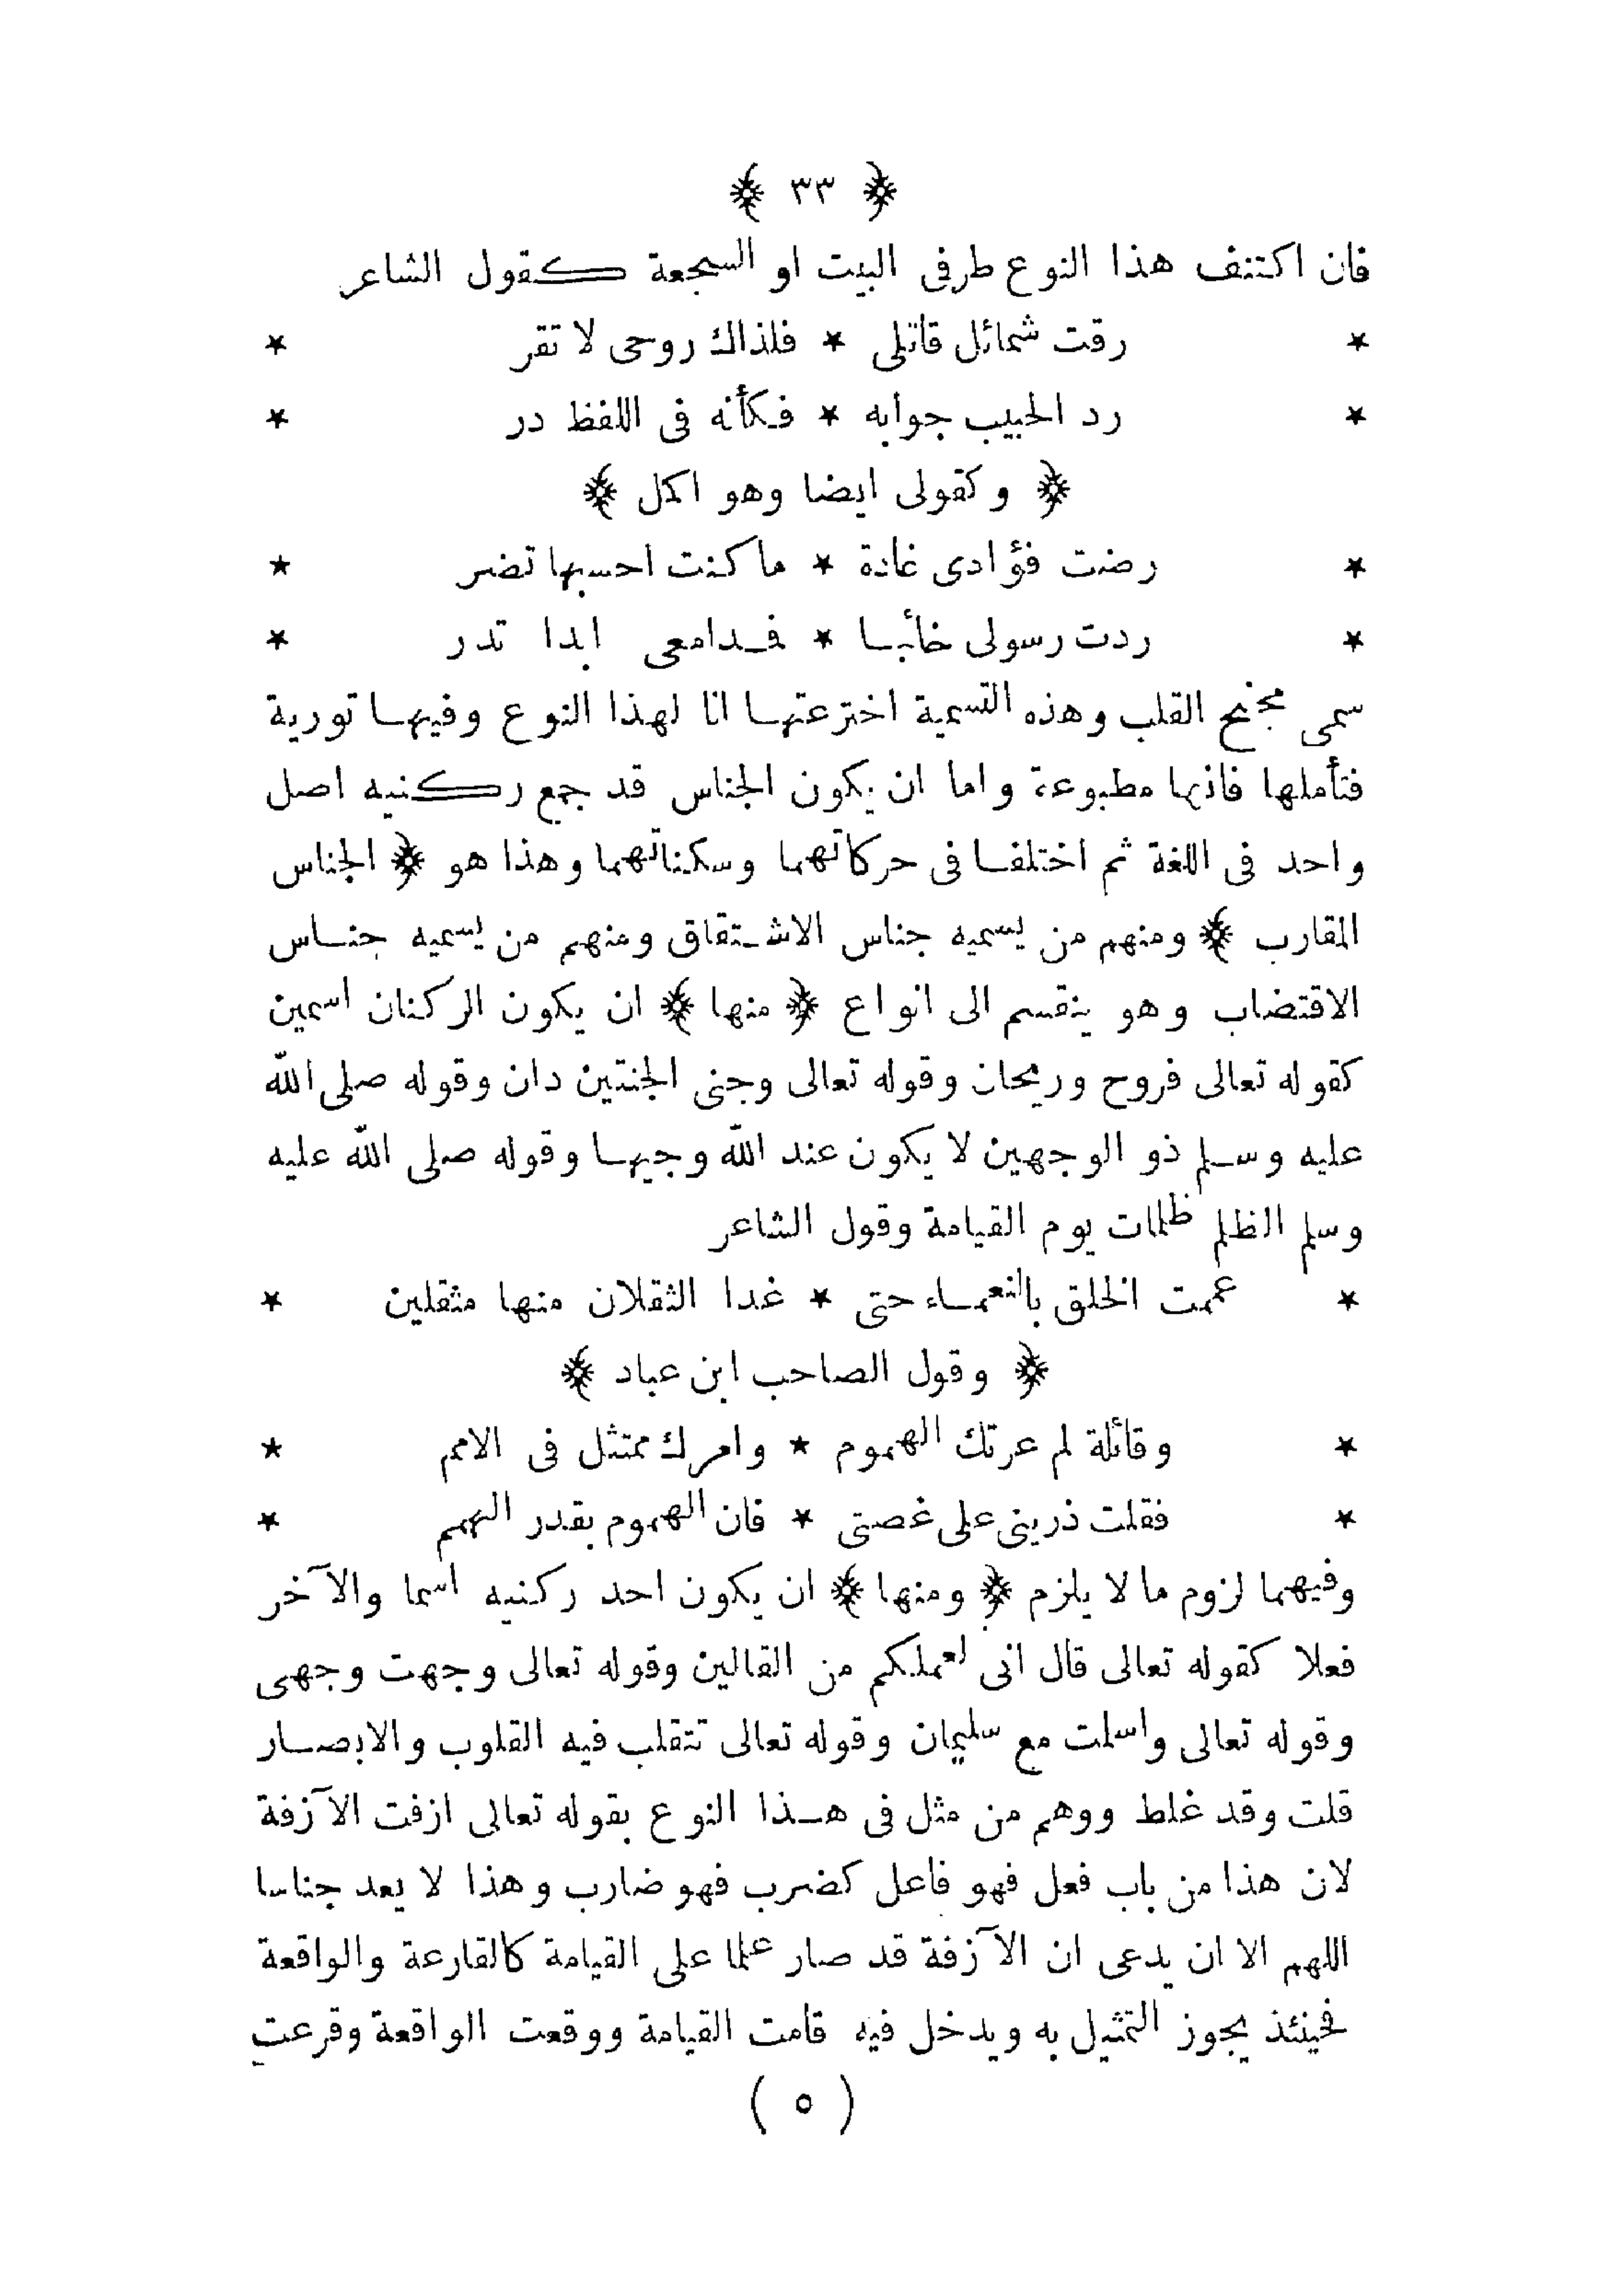 ﴿ ٣٣ ﴾
فان اكتنف هذا النوع طرفى البيت او السجعة كقول الشاعر
* رقت شمائل قاتلى * فلذاك روحى لا تقر *
* رد الحبيب جوابه * فكأنه فى اللفظ در *
﴿ وكقولى ايضا وهو اكمل ﴾
* رضت فؤادى غادة * ماكنت احسبها تضر *
* ردت رسولى خائبا * فدامعى ابدا تدر *
سمى مجنح القلب وهذه التسمية اخترعتها انا لهذا النوع وفيها تورية
فتأملها فانها مطبوعة واما ان يكون الجناس قد جمع ركنيه اصل
واحد فى اللغة ثم اختلفا فى حركاتهما وسكناتهما وهذا هو ﴿ الجناس
المقارب ﴾ ومنهم من يسميه جناس الاشتقاق ومنهم من يسميه جناس
الاقتضاب وهو ينقسم الى انواع ﴿ منها ﴾ ان يكون الركنان اسمين
كقوله تعالى فروح وريحان وقوله تعالى وجنى الجنتين دان وقوله صلى الله
عليه وسلم ذو الوجهين لا يكون عند الله وجيها وقوله صلى الله عليه
وسلم الظلم ظلمات يوم القيامة وقول الشاعر
* عممت الخلق بالنعماء حتى * غدا الثقلان منها مثقلين *
﴿ وقول الصاحب ابن عباد ﴾
* وقائلة لم عرتك الهموم * وامرك ممتثل فى الامم *
* فقلت ذرينى على غصتى * فان الهموم بقدر الهمم *
وفيهما لزوم ما لا يلزم ﴿ ومنها ﴾ ان يكون احد ركنيه اسما والآخر
فعلا كقوله تعالى قال انى لعملكم من القالين وقوله تعالى وجهت وجهى
وقوله تعالى واسلمت مع سليمان وقوله تعالى تتقلب فيه القلوب والابصار
قلت وقد غلط ووهم من مثل فى هذا النوع بقوله تعالى ازفت الآزفة
لان هذا من باب فعل فهو فاعل كضرب فهو ضارب وهذا لا يعد جناسا
اللهم الا ان يدعى ان الآزفة قد صار علما على القيامة كالقارعة والواقعة
فحينئذ يجوز التمثيل به ويدخل فيه قامت القيامة ووقعت الواقعة وقرعت
( ٥ )